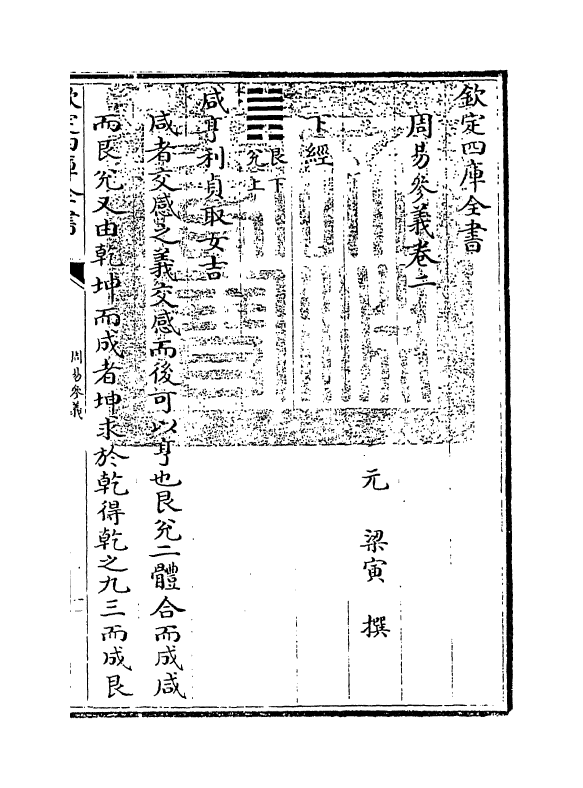 欽定四庫全書
周易參義卷二
元 梁寅 撰
下經
䷞艮下兌上
咸亨利貞取女吉
咸者交感之義交感而後可以亨也艮兌二體合而成咸
而艮兌又由乾坤而成者坤求於乾得乾之九三而成艮
欽定四庫全書
周易參義